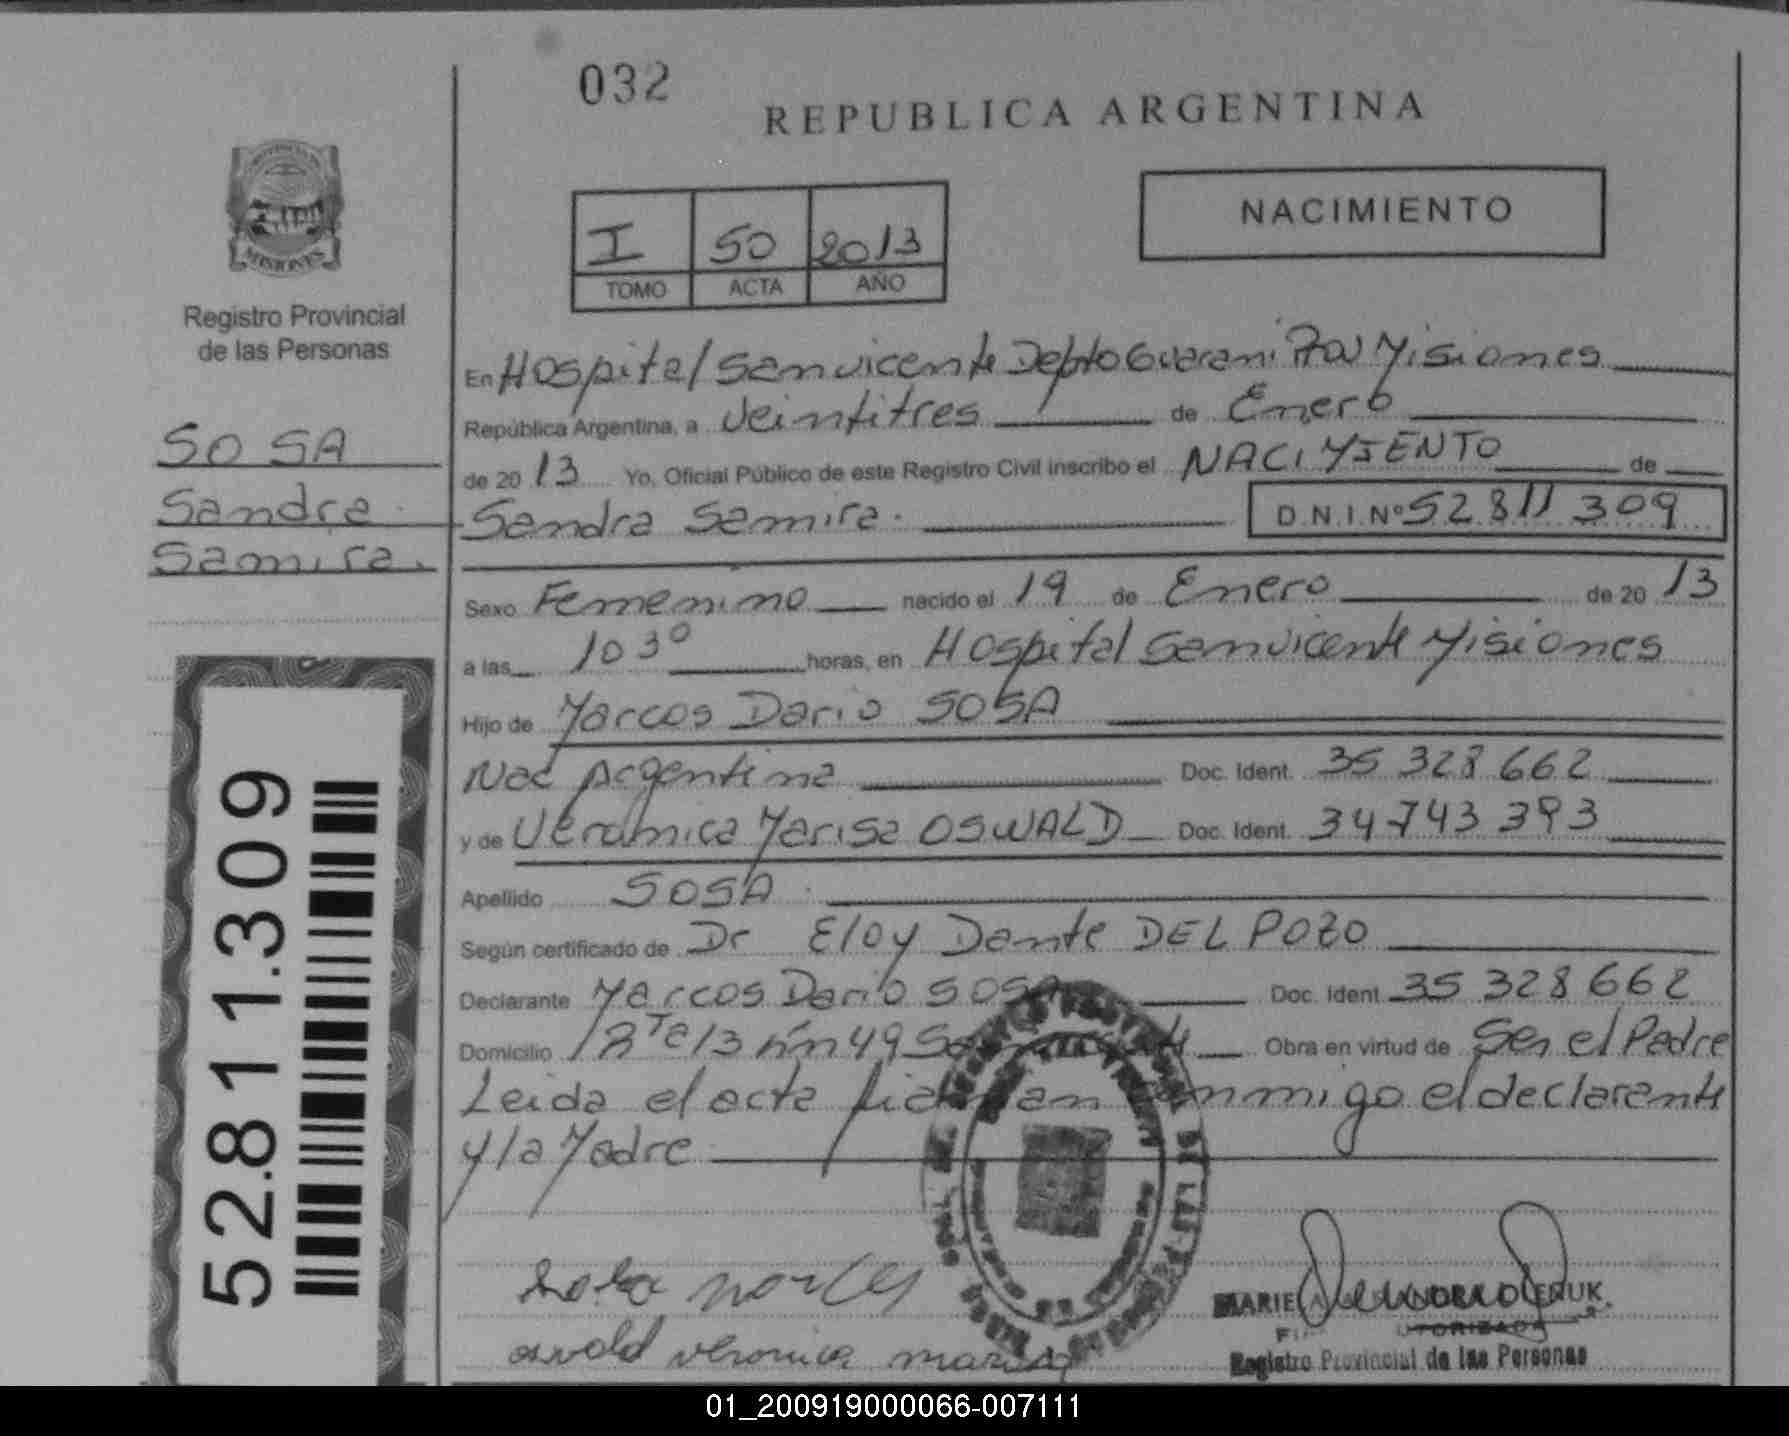 032
REPUBLICA ARGENTINA
PROVINCIA DE
MISIONES
Registro Provincial
de las Personas
NACIMIENTO
I 50 2013
TOMO ACTA AÑO
SOSA
Sandra
Samira.
En Hospital San vicente Depto Guarani Misiones
República Argentina, a Veintitres de Enero
de 20 13 Yo, Oficial Público de este Registro Civil inscribo el NACIMIENTO de
Sandra Samira. D.N.I.Nº 52811309
Sexo Femenino nacido el 19 de Enero de 20 13
a las 10 30 horas, en Hospital San vicente Misiones
Hijo de Marcos Dario SOSA
Nac Argentina Doc. Ident. 35 328 662
y de Veronica Marisa OSWALD Doc. Ident. 34743 393
Apellido SOSA
Según certificado de Dr Eloy Dante DEL POZO
Declarante Marcos Dario SOSA Doc. Ident. 35 328 662
Domicilio Obra en virtud de Ser el Padre
Leida el acta firman conmigo el declarante
y la Madre
52.811.309
sosa marcos
oswald veronica marisa
MARIE
Registro Provincial de las Personas
01_200919000066-007111